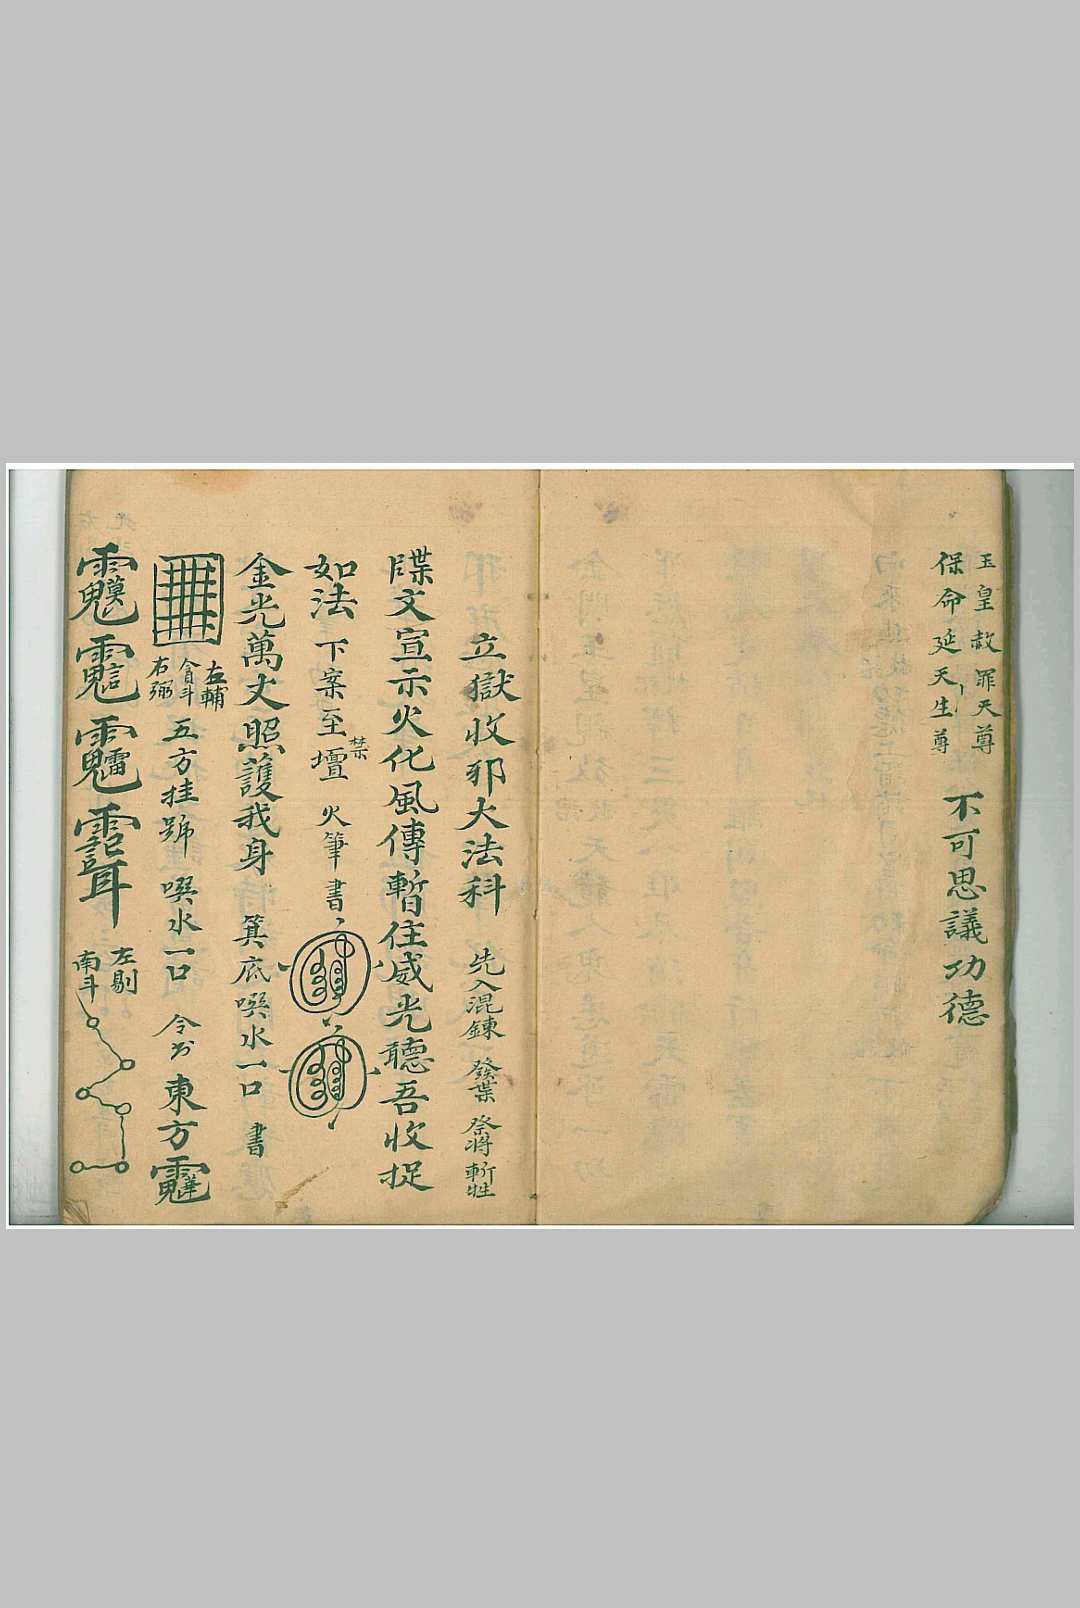 玉皇赦罪天尊
保命延生天尊
不可思議功德
立獄收邪大法科 先入混鍊 發葉 祭將 斬牲
牒文宣示火化風傳暫住威光聽吾收捉
如法 下案至壇禁 火筆書
金光萬丈照護我身 箕底噀水一口 書
左輔
貪斗
右弼
五方挂號 噀水一口 令書 東方
左剔
南斗